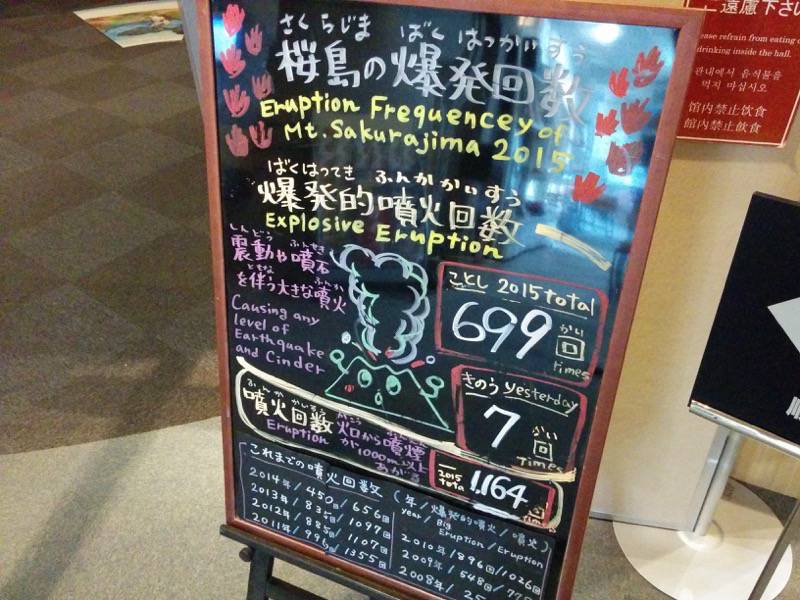 さくらじま ばくはつかいすう
桜島の爆発回数
Eruption Frequencey of
Mt. Sakurajima 2015
ばくはつてき ふんかかいすう
爆発的噴火回数
Explosive Eruption
しんどう ふんせき
震動や噴石
ともな ふんか
を伴う大きな噴火
Causing any
level of
Earthquake
and Cinder
ことし 2015 total
699 回
かい
times
きのう yesterday
7 回
かい
times
ふんかかいすう
噴火回数
Eruption
火口から噴煙
が1000m以上
あがる
2015
total
1,164 回
times
これまでの噴火回数 (年/爆発的噴火/噴火)
year/Big Eruption/Eruption
2014年/450回/656回
2013年/835回/1097回
2012年/885回/1107回
2011年/996回/1355回
2010年/896回/1026回
2009年/548回/
2008年/
遠慮下さい
ease refrain from eating
drinking inside the hall.
관내에서 음식물을
먹지 마십시오
馆内禁止饮食
館内禁止飲食